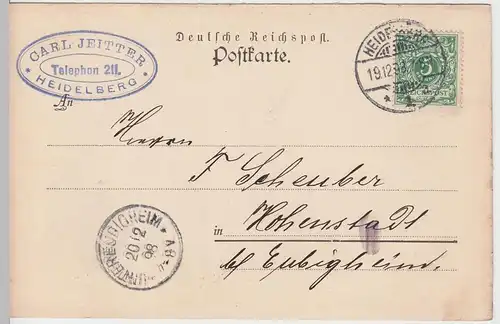 Deutsche Reichspost.
Postkarte.
CARL JEITTER
Telephon 211.
* HEIDELBERG *
HEIDELBERG
19.12.98
* 1.
5
REICHSPOST
An
Herrn
F Scheuber
in Hohenstadt
b/ Eubigheim.
20/12
98